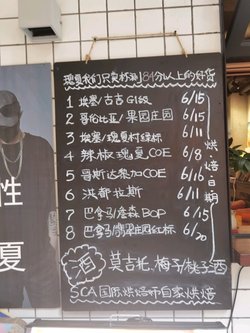 瑰夏我们只卖杯测84分以上的好货
1 埃塞/古吉 G1级 6/15
2 哥伦比亚/果园庄园 6/15
3 埃塞/瑰夏村绿标 6/11
4 辣椒瑰夏COE 6/8
5 哥斯达黎加COE 6/16
6 洪都拉斯 6/11
7 巴拿马/詹森BOP 6/15
8 巴拿马/翡翠庄园红标 6/20
烘·焙日期
酒 莫吉托、梅子/桃子酒
SCA国际烘焙师自家烘焙
性
夏